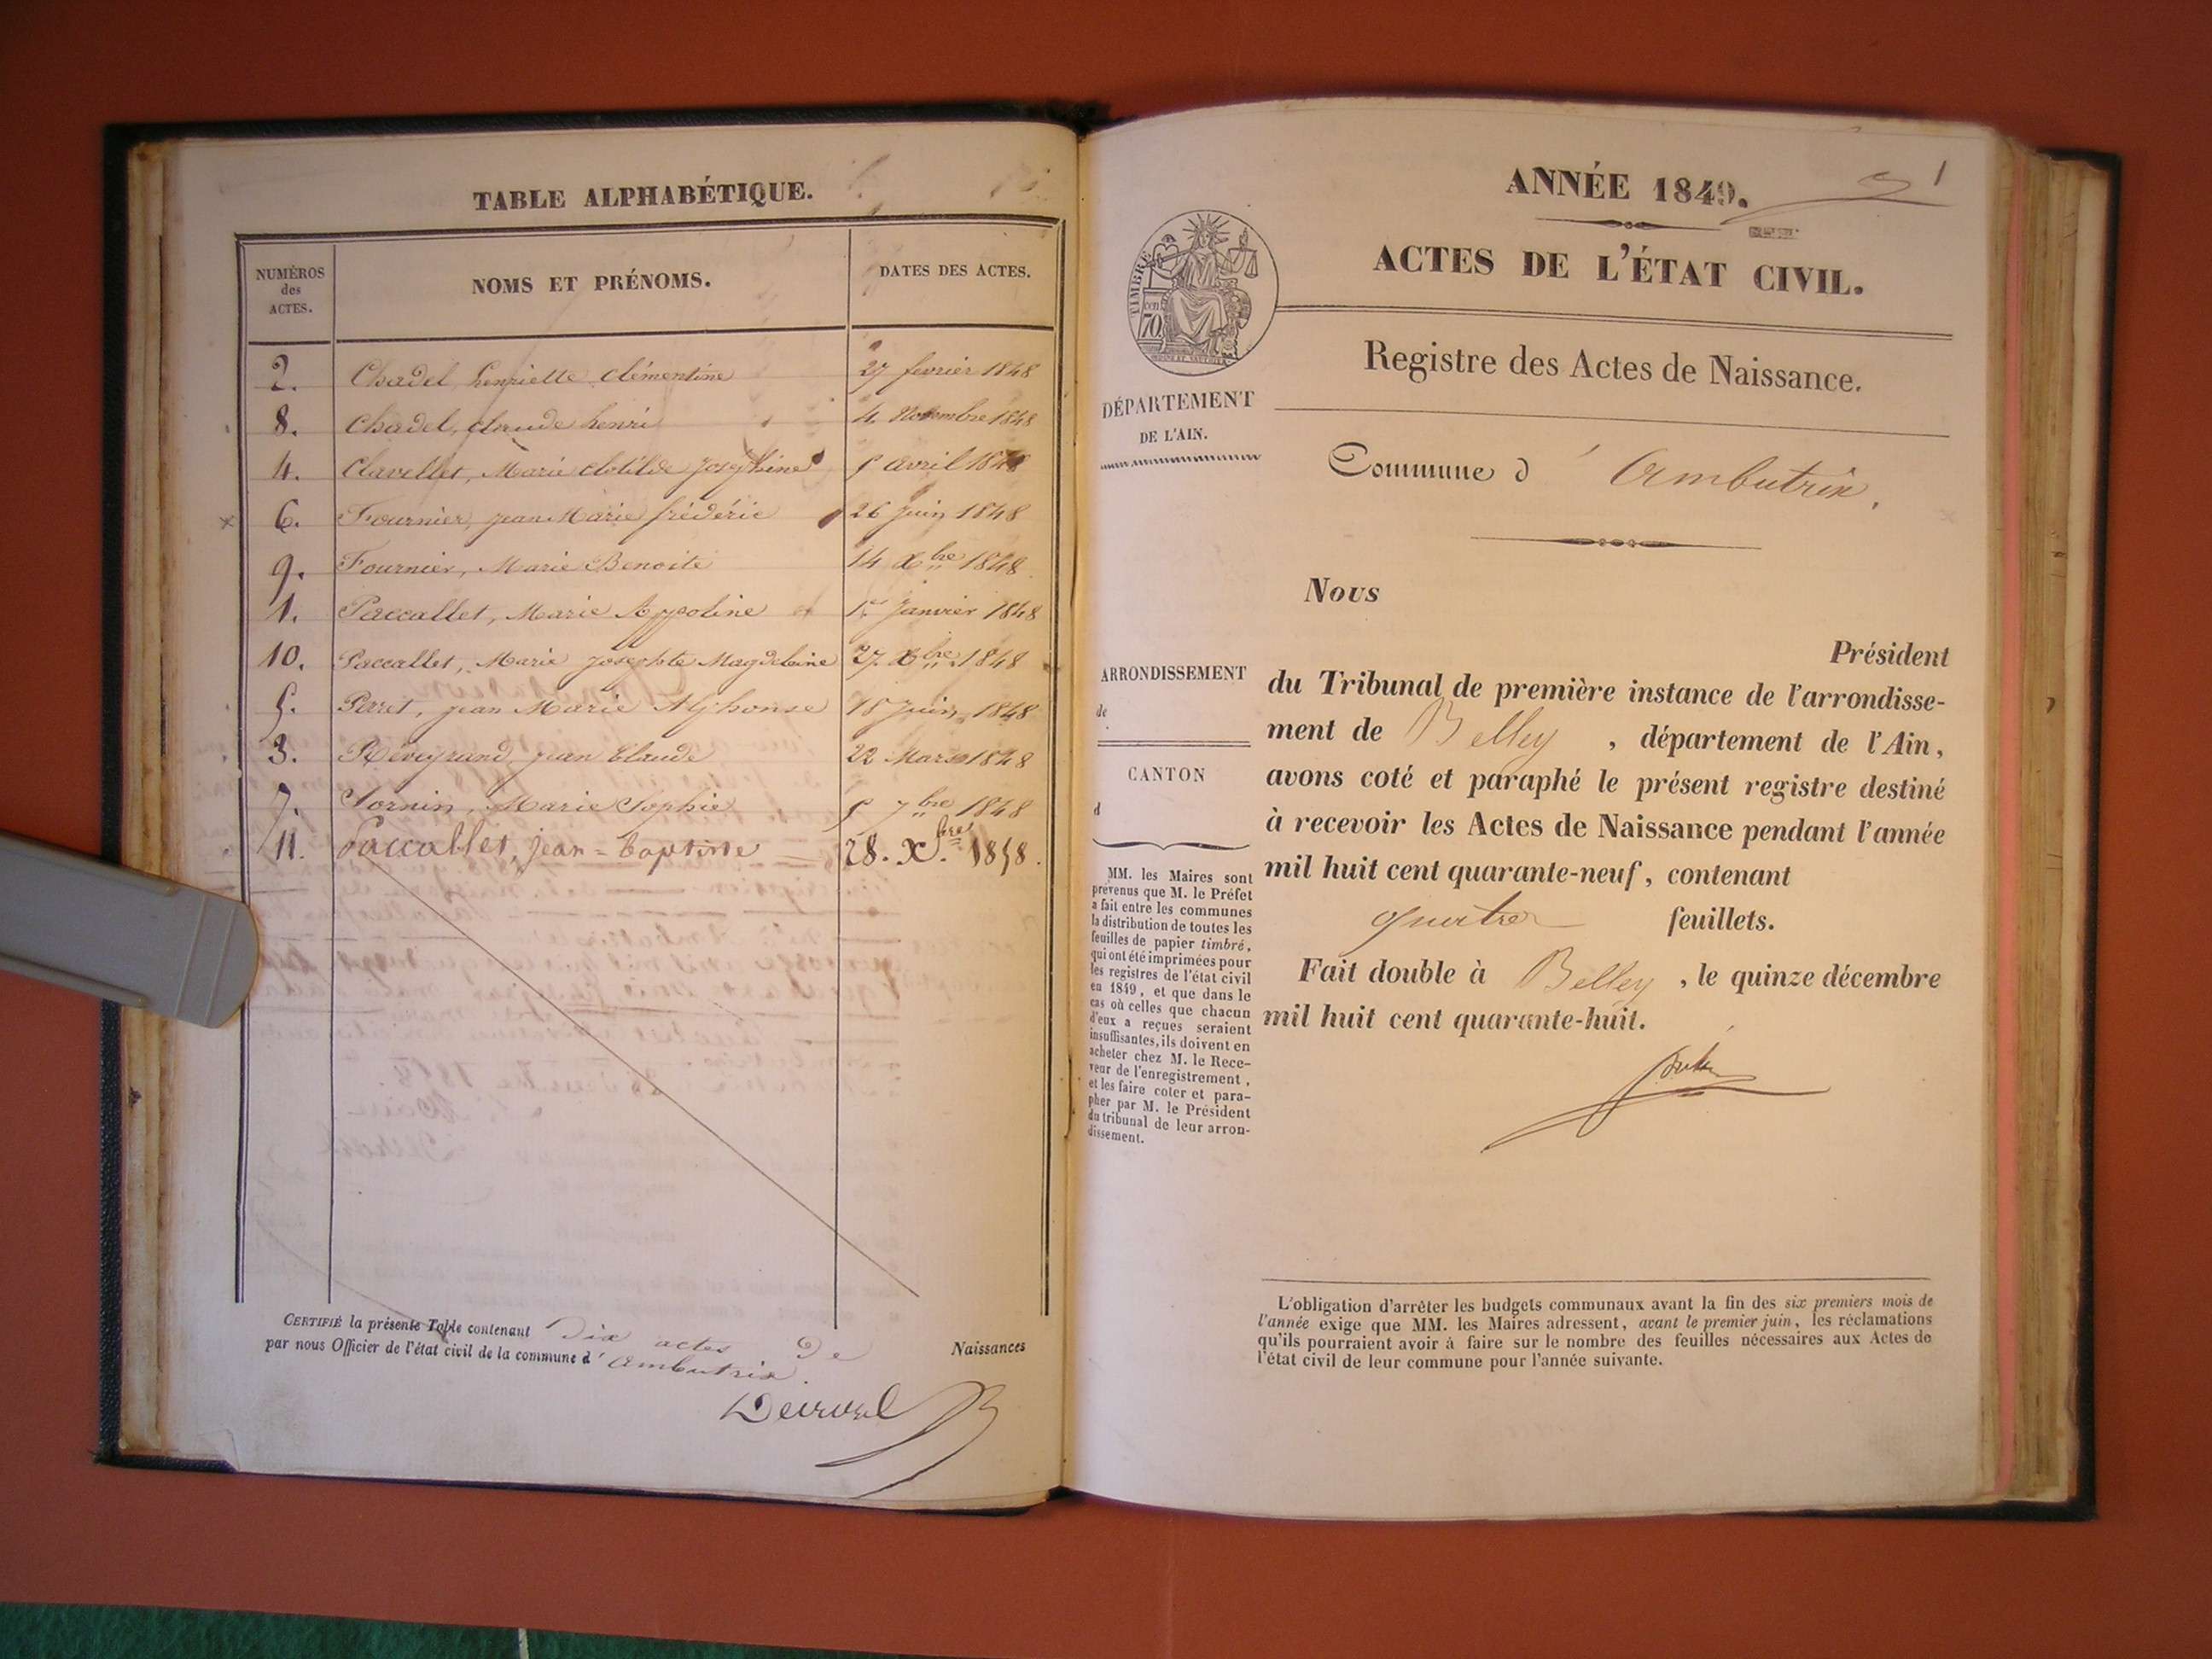 TABLE ALPHABÉTIQUE.
NUMÉROS
des
ACTES.
NOMS ET PRÉNOMS.
DATES DES ACTES.
2. Chadel, henriette clémentine 27 fevrier 1848
8. Chadel, claude henri 4 Novembre 1848
4. Clavellet, Marie clotilde Josephine 5 avril 1848
6. Fournier, jean Marie frédéric 26 Juin 1848
9. Fournier, Marie Benoite 14 Xbre 1848
1. Paccallet, Marie Appoline 1er Janvier 1848
10. Paccallet, Marie Josephte Magdeleine 27 Xbre 1848
5. Perret, jean Marie Alphonse 18 Juin 1848
3. Reveyrand, jean Claude 22 Mars 1848
7. Tornin, Marie Sophie 5 7bre 1848
11. Paccallet, jean-baptiste 28. Xbre 1858.
CERTIFIÉ la présente Table contenant Dix actes de Naissances
par nous Officier de l'état civil de la commune d'Ambutrix.
1
ANNÉE 1849.
ACTES DE L'ÉTAT CIVIL.
TIMBRE
cen
70
Registre des Actes de Naissance.
DÉPARTEMENT
DE L'AIN.
Commune d'Ambutrix.
Nous
Président
du Tribunal de première instance de l'arrondisse-
ment de Belley, département de l'Ain,
avons coté et paraphé le présent registre destiné
à recevoir les Actes de Naissance pendant l'année
mil huit cent quarante-neuf, contenant
quatre feuillets.
Fait double à Belley, le quinze décembre
mil huit cent quarante-huit.
ARRONDISSEMENT
de
CANTON
d
MM. les Maires sont
prévenus que M. le Préfet
a fait entre les communes
la distribution de toutes les
feuilles de papier timbré,
qui ont été imprimées pour
les registres de l'état civil
en 1849, et que dans le
cas où celles que chacun
d'eux a reçues seraient
insuffisantes, ils doivent en
acheter chez M. le Rece-
veur de l'enregistrement,
et les faire coter et para-
pher par M. le Président
du tribunal de leur arron-
dissement.
L'obligation d'arrêter les budgets communaux avant la fin des six premiers mois de
l'année exige que MM. les Maires adressent, avant le premier juin, les réclamations
qu'ils pourraient avoir à faire sur le nombre des feuilles nécessaires aux Actes de
l'état civil de leur commune pour l'année suivante.